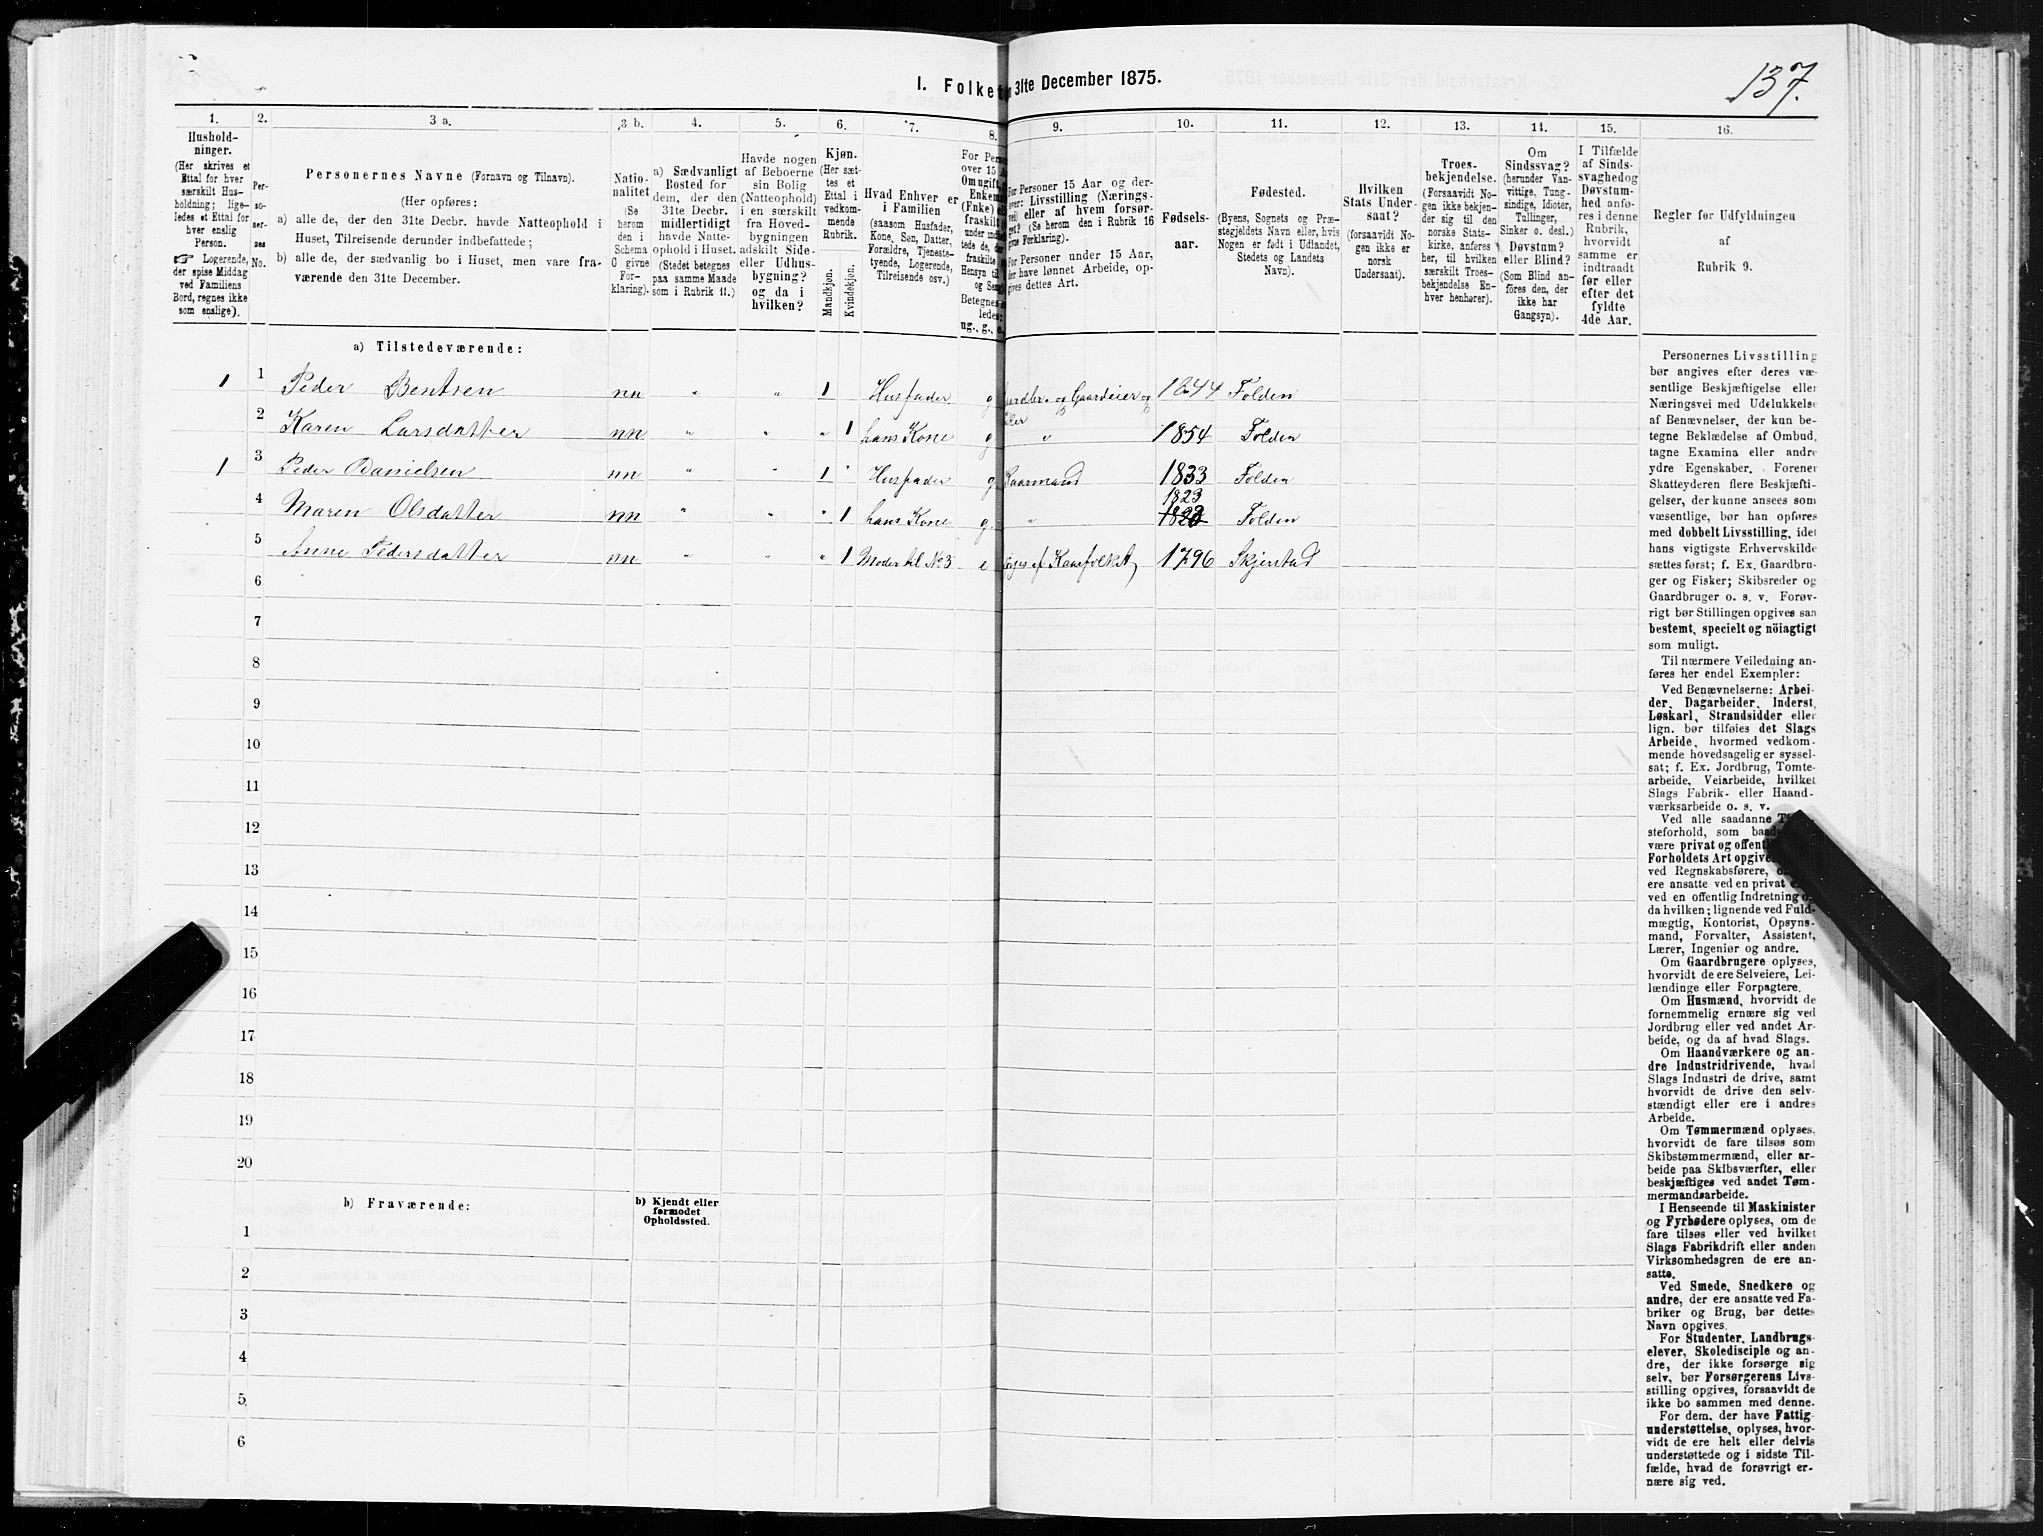 137.
I. Folket 31te December 1875.
1. 2. 3 a. 3 b. 4. 5. 6. 7. 8. 9. 10. 11. 12. 13. 14. 15. 16.
Hushold-
ninger.
(Her skrives et
Ettal for hver
særskilt Hus-
holdning; lige-
ledes et Ettal for
hver enslig
Person.
☞ Logerende,
der spise Middag
ved Familiens
Bord, regnes ikke
som enslige).
Per-
so-
ner-
nes
No.
Personernes Navne (Fornavn og Tilnavn).
(Her opføres:
a) alle de, der den 31te Decbr. havde Natteophold i
Huset, Tilreisende derunder indbefattede;
b) alle de, der sædvanlig bo i Huset, men vare fra-
værende den 31te December.
Natio-
nalitet
(Se
herom
den i
Schema
O givne
For-
klaring).
a) Sædvanligt
Bosted for
dem, der den
31te Decbr.
midlertidigt
havde Natte-
ophold i Huset.
(Stedet betegnes
paa samme Maade
som i Rubrik 11.)
Havde nogen
af Beboerne
sin Bolig
(Natteophold)
i en særskilt
fra Hoved-
bygningen
adskilt Side-
eller Udhus-
bygning?
og da i
hvilken?
Kjøn.
(Her sæt-
tes et
Ettal i
vedkom-
mende
Rubrik.
Mandkjøn.
Kvindekjøn.
Hvad Enhver er
i Familien
(saasom Husfader,
Kone, Søn, Datter,
Forældre, Tjeneste-
tyende, Logerende,
Tilreisende osv.)
For Pers
over 15 A
Omugift,
Enkem
(Enke) e
fraskilt
under ind
tede de,
fraskilte
Hensyn til
og Sen
Betegnes
ledes:
ug., g., e.
For Personer 15 Aar og der-
over: Livsstilling (Nærings-
vei) eller af hvem forsør-
get? (Se herom den i Rubrik 16
givne Forklaring).
For Personer under 15 Aar,
der have lønnet Arbeide, op-
gives dettes Art.
Fødsels-
aar.
Fødested.
(Byens, Sognets og Præ-
stegjeldets Navn eller, hvis
Nogen er født i Udlandet,
Stedets og Landets
Navn).
Hvilken
Stats Under-
saat?
(forsaavidt No-
gen ikke er
norsk
Undersaat).
Troes-
bekjendelse.
(Forsaavidt No-
gen ikke bekjen-
der sig til den
norske Stats-
kirke, anføres
her, til hvilken
særskilt Troes-
bekjendelse En-
hver henhører).
Om
Sindssvag?
(herunder Van-
vittige, Tung-
sindige, Idioter,
Tullinger,
Sinker o. desl.)
Døvstum?
eller Blind?
(Som Blind an-
føres den, der
ikke har
Gangsyn).
I Tilfælde
af Sinds-
svaghed og
Døvstum-
hed anfø-
res i denne
Rubrik,
hvorvidt
samme er
indtraadt
før eller
efter det
fyldte
4de Aar.
Regler for Udfyldningen
af
Rubrik 9.
a) Tilstedeværende:
1 1 Peder Bentsen nn " " 1 Husfader g ardbr. og Gaardeier og 1844 Folden
2 Karen Larsdatter nn " " " 1 hans Kone g " 1854 Folden
1 3 Peder Danielsen nn " " 1 " Husfader g Kaarmand 1833 Folden
1823
4 Maren Olsdatter nn " " " 1 hans Kone g " Folden
5 Anne Pedersdatter nn " " " 1 Moder til No 3 e af Kaarfolket 1796 Skjerstad
6
7
8
9
10
11
12
13
14
15
16
17
18
19
20
b) Fraværende:
b) Kjendt eller
formodet
Opholdssted.
1
2
3
4
5
6
Personernes Livsstilling
bør angives efter deres væ-
sentlige Beskjæftigelse eller
Næringsvei med Udelukkelse
af Benævnelser, der kun be-
tegne Beklædelse af Ombud,
tagne Examina eller andre
ydre Egenskaber. Forener
Skatteyderen flere Beskjæfti-
gelser, der kunne ansees som
væsentlige, bør han opføres
med dobbelt Livsstilling, idet
hans vigtigste Erhvervskilde
sættes først; f. Ex. Gaardbru-
ger og Fisker; Skibsreder og
Gaardbruger o. s. v. Forøv-
rigt bør Stillingen opgives saa
bestemt, specielt og nöiagtigt
som muligt.
Til nærmere Veiledning an-
føres her endel Exempler:
Ved Benævnelserne: Arbei-
der, Dagarbeider, Inderst,
Løskarl, Strandsidder eller
lign. bør tilføies det Slags
Arbeide, hvormed vedkom-
mende hovedsagelig er syssel-
sat; f. Ex. Jordbrug, Tomte-
arbeide, Veiarbeide, hvilket
Slags Fabrik- eller Haand-
værksarbeide o. s. v.
Ved alle saadanne
steforhold, som
være privat og offent
Forholdets Art opgive
ved Regnskabsførere,
ere ansatte ved en privat
ved en offentlig Indretning
da hvilken; lignende ved Fuld-
mægtig, Kontorist, Opsyns-
mand, Forvalter, Assistent,
Lærer, Ingeniør og andre.
Om Gaardbrugere oplyses,
hvorvidt de ere Selveiere, Lei-
lændinge eller Forpagtere.
Om Husmænd, hvorvidt de
fornemmelig ernære sig ved
Jordbrug eller ved andet Ar-
beide, og da af hvad Slags.
Om Haandværkere og an-
dre Industridrivende, hvad
Slags Industri de drive, samt
hvorvidt de drive den selv-
stændigt eller ere i andres
Arbeide.
Om Tømmermænd oplyses,
hvorvidt de fare tilsøs som
Skibstømmermænd, eller ar-
beide paa Skibsværfter, eller
beskjæftiges ved andet Tøm-
mermandsarbeide.
I Henseende til Maskinister
og Fyrbødere oplyses, om de
fare tilsøs eller ved hvilket
Slags Fabrikdrift eller anden
Virksomhedsgren de ere an-
satte.
Ved Smede, Snedkere og
andre, der ere ansatte ved Fa-
briker og Brug, bør dettes
Navn opgives.
For Studenter, Landbrugs-
elever, Skoledisciple og an-
dre, der ikke forsørge sig
selv, bør Forsørgerens Livs-
stilling opgives, forsaavidt de
ikke bo sammen med denne.
For dem, der have Fattig-
understøttelse, oplyses, hvor-
vidt de ere helt eller delvis
understøttede og i sidste Til-
fælde, hvad de forøvrigt er-
nære sig ved.